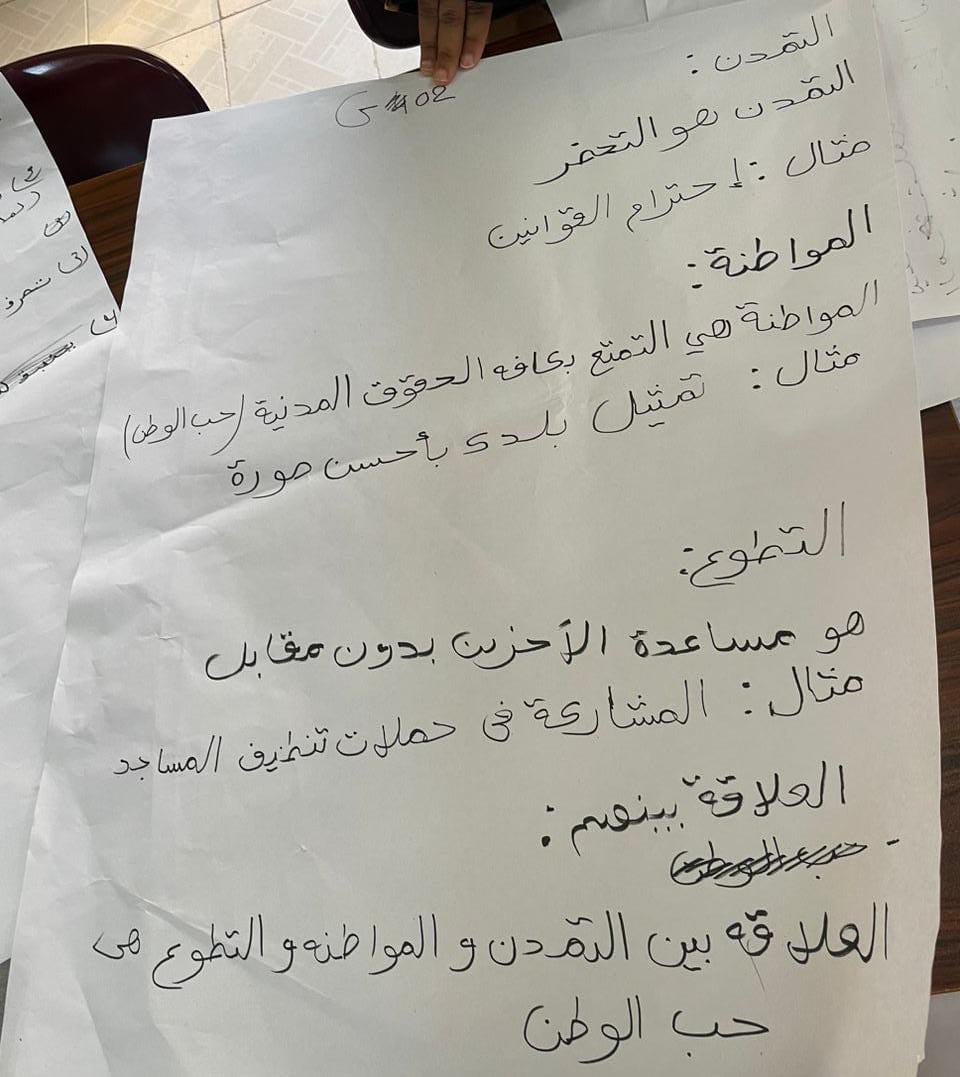 G 02
التمدن:
التمدن هو التحضر
مثال: إحترام القوانين
المواطنة:
المواطنة هي التمتع بكافه الحقوق المدنية (حب الوطن)
مثال: تمثيل بلدى بأحسن صورة
التطوع:
هو مساعدة الأخرين بدون مقابل
مثال: المشاركة فى حملات تنظيف المساجد
العلاقة بينهم:
العلاقه بين التمدن و المواطنه و التطوع هى
حب الوطن